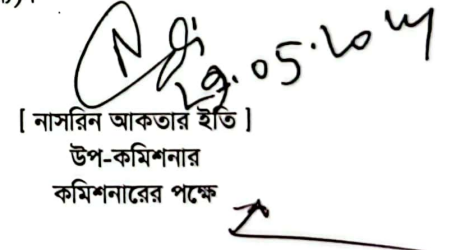 29.05.2024
[ নাসরিন আকতার ইতি ]
উপ-কমিশনার
কমিশনারের পক্ষে